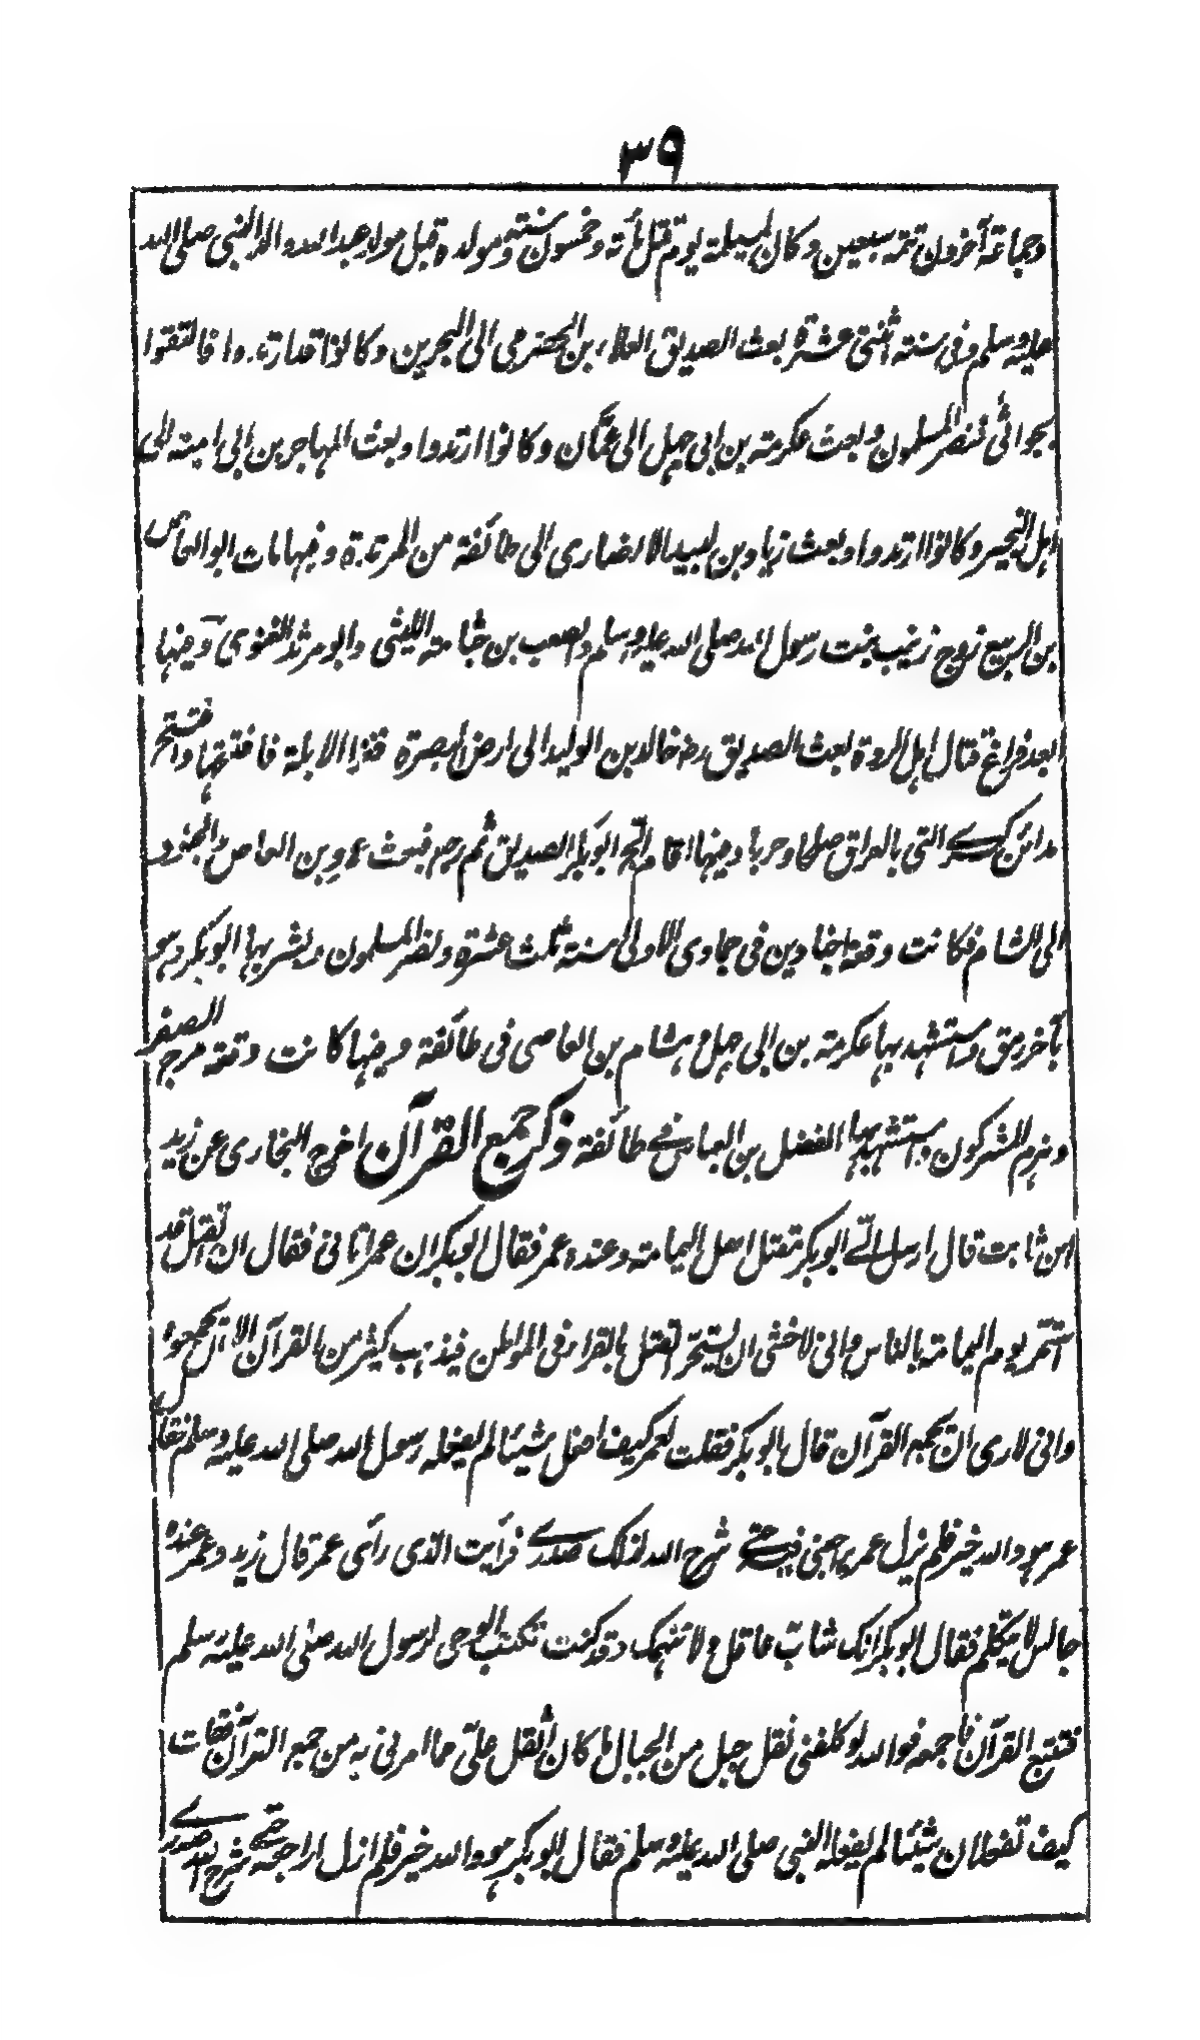 ٣٩
وجماعة آخرون تتمة سبعين وكان لمسيلمة يوم قتل مأئة وخمسون سنة ومولده قبل مولد عبدالله والد النبي صلى الله
عليه وسلم وفى سنة اثنتى عشرة بعث الصديق العلاء بن الحضرمى الى البحرين وكانوا قد ارتدوا فالتقوا
بجواثى فنصر المسلمون وبعث عكرمة بن ابى جهل الى عمّان وكانوا ارتدوا وبعث المهاجر بن ابى امية الى
اهل النجير وكانوا ارتدوا وبعث زياد بن لبيد الانصارى الى طائفة من المرتدة وفيها مات ابو العاص
بن الربيع زوج زينب بنت رسول الله صلى الله عليه وسلم والصعب بن جثامة الليثى وابو مرثد الغنوى وفيها
بعد فراغ قتال اهل الردة بعث الصديق رض خالد بن الوليد الى ارض البصرة فغزا الابلة فافتتحها وافتتح
مدائن كسرے التى بالعراق صلحا وحربا وفيها اقام الحج ابو بكر الصديق ثم رجع فبعث عمرو بن العاص والجنود
الى الشام فكانت وقعة اجنادين فى جمادى الاولى سنة ثلث عشرة ونصر المسلمون وبشر بها ابو بكر وهو
بآخر رمق واستشهد بها عكرمة بن ابى جهل وهشام بن العاصى فى طائفة وفيها كانت وقعة مرج الصفر
وهزم المشركون واستشهد بها الفضل بن العباس فے طائفة ذكر جمع القرآن اخرج البخارى عن زيد
ابن ثابت قال ارسل الىّ ابو بكر مقتل اهل اليمامة وعنده عمر فقال ابو بكر ان عمر اتانى فقال ان القتل قد
استحر يوم اليمامة بالناس وانى لاخشى ان يستحر القتل بالقراء فى المواطن فيذهب كثير من القرآن الا ان تجمعوه
وانى لارى ان تجمع القرآن قال ابو بكر فقلت لعمر كيف افعل شيئا لم يفعله رسول الله صلى الله عليه وسلم فقال
عمر هو والله خير فلم يزل عمر يراجعنى فيه حتے شرح الله لذلك صدرے فرأيت الذى رأى عمر قال زيد وعمر عنده
جالس لا يتكلم فقال ابو بكر انك شابّ عاقل ولا نتهمك وقد كنت تكتب الوحى لرسول الله صلى الله عليه وسلم
فتتبع القرآن فاجمعه فوالله لو كلفنى نقل جبل من الجبال ما كان اثقل علىّ مما امرنى به من جمع القرآن فقلت
كيف تفعلان شيئا لم يفعله النبى صلى الله عليه وسلم فقال ابو بكر هو والله خير فلم ازل اراجعه حتے شرح الله صدرے